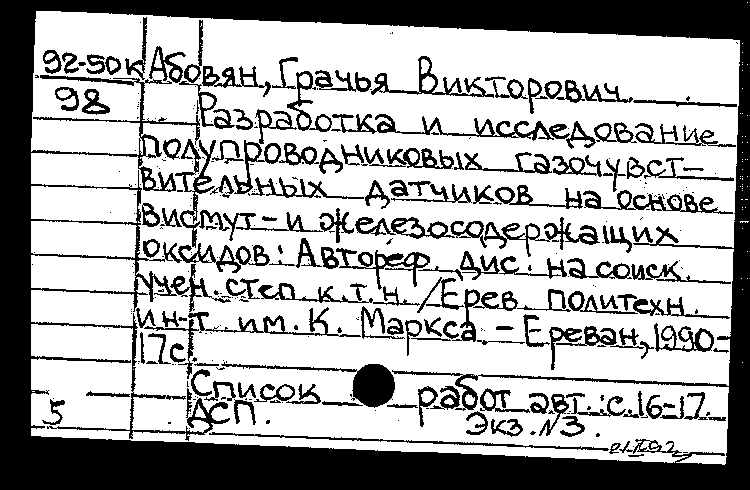 92-50к Абовян, Грачья Викторович.
98 Разработка и исследование
полупроводниковых газочувст-
вительных датчиков на основе
висмут- и железосодержащих
оксидов: Автореф. дис. на соиск.
учен. степ. к.т.н. /Ерев. политехн.
ин-т им. К. Маркса. - Ереван, 1990-
17с.
Список работ авт.: с.16-17.
5 ДСП. Экз. №3.